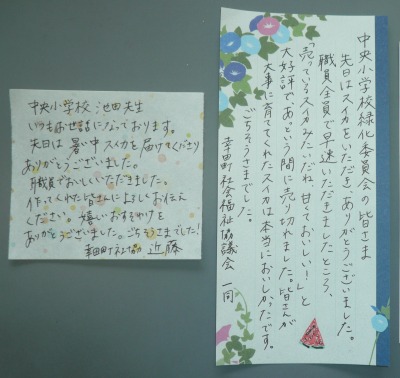 中央小学校 池田先生
いつもお世話になっております。
先日は 暑い中 スイカを届けてくださり
ありがとうございました。
職員でおいしくいただきました。
作ってくれた皆さんによろしくお伝え
ください。嬉しいおすそわけを
ありがとうございました。ごちそうさまでした!
幸田町社協 近藤
中央小学校緑化委員会の皆さま
先日はスイカをいただき、ありがとうございました。
職員全員で早速いただきましたところ、
「売っているスイカみたいだね、甘くておいしい!」と
大好評で、あっという間に売り切れました。皆さんが
大事に育ててくれたスイカは本当においしかったです。
ごちそうさまでした。
幸田町社会福祉協議会 一同